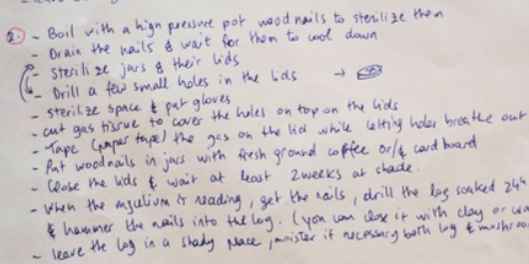 2. - Boil with a high pressure pot wood nails to sterilize them
- Drain the nails & wait for them to cool down
- Sterilize jars & their lids
- Drill a few small holes in the lids →
- sterilize space & put gloves
- cut gas tissue to cover the holes on top on the lids
- Tape (paper tape) the gas on the lid while letting holes breathe out
- Put woodnails in jars with fresh ground coffee or/& cardboard
- Close the lids & wait at least 2weeks at shade.
- When the mycelium is reading, get the nails, drill the log soaked 24h
& hammer the nails into the log. (you can close it with clay or wa
- leave the log in a shady place, moister if necessary both log & mushroo